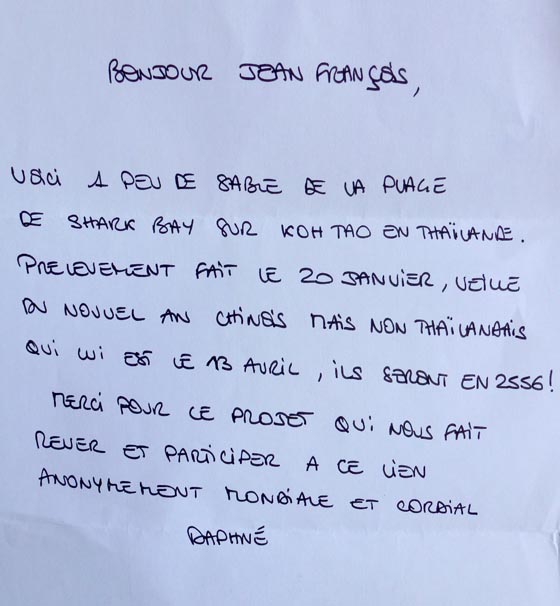 BONJOUR JEAN FRANÇOIS,
VOICI 1 PEU DE SABLE DE LA PLAGE
DE SHARK BAY SUR KOH TAO EN THAÏLANDE.
PRELEVEMENT FAIT LE 20 JANVIER, VEILLE
DU NOUVEL AN CHINOIS MAIS NON THAÏLANDAIS
QUI LUI EST LE 13 AVRIL, ILS SERONT EN 2556!
MERCI POUR CE PROJET QUI NOUS FAIT
REVER ET PARTICIPER A CE LIEN
ANONYMEMENT MONDIALE ET CORDIAL
DAPHNÉ